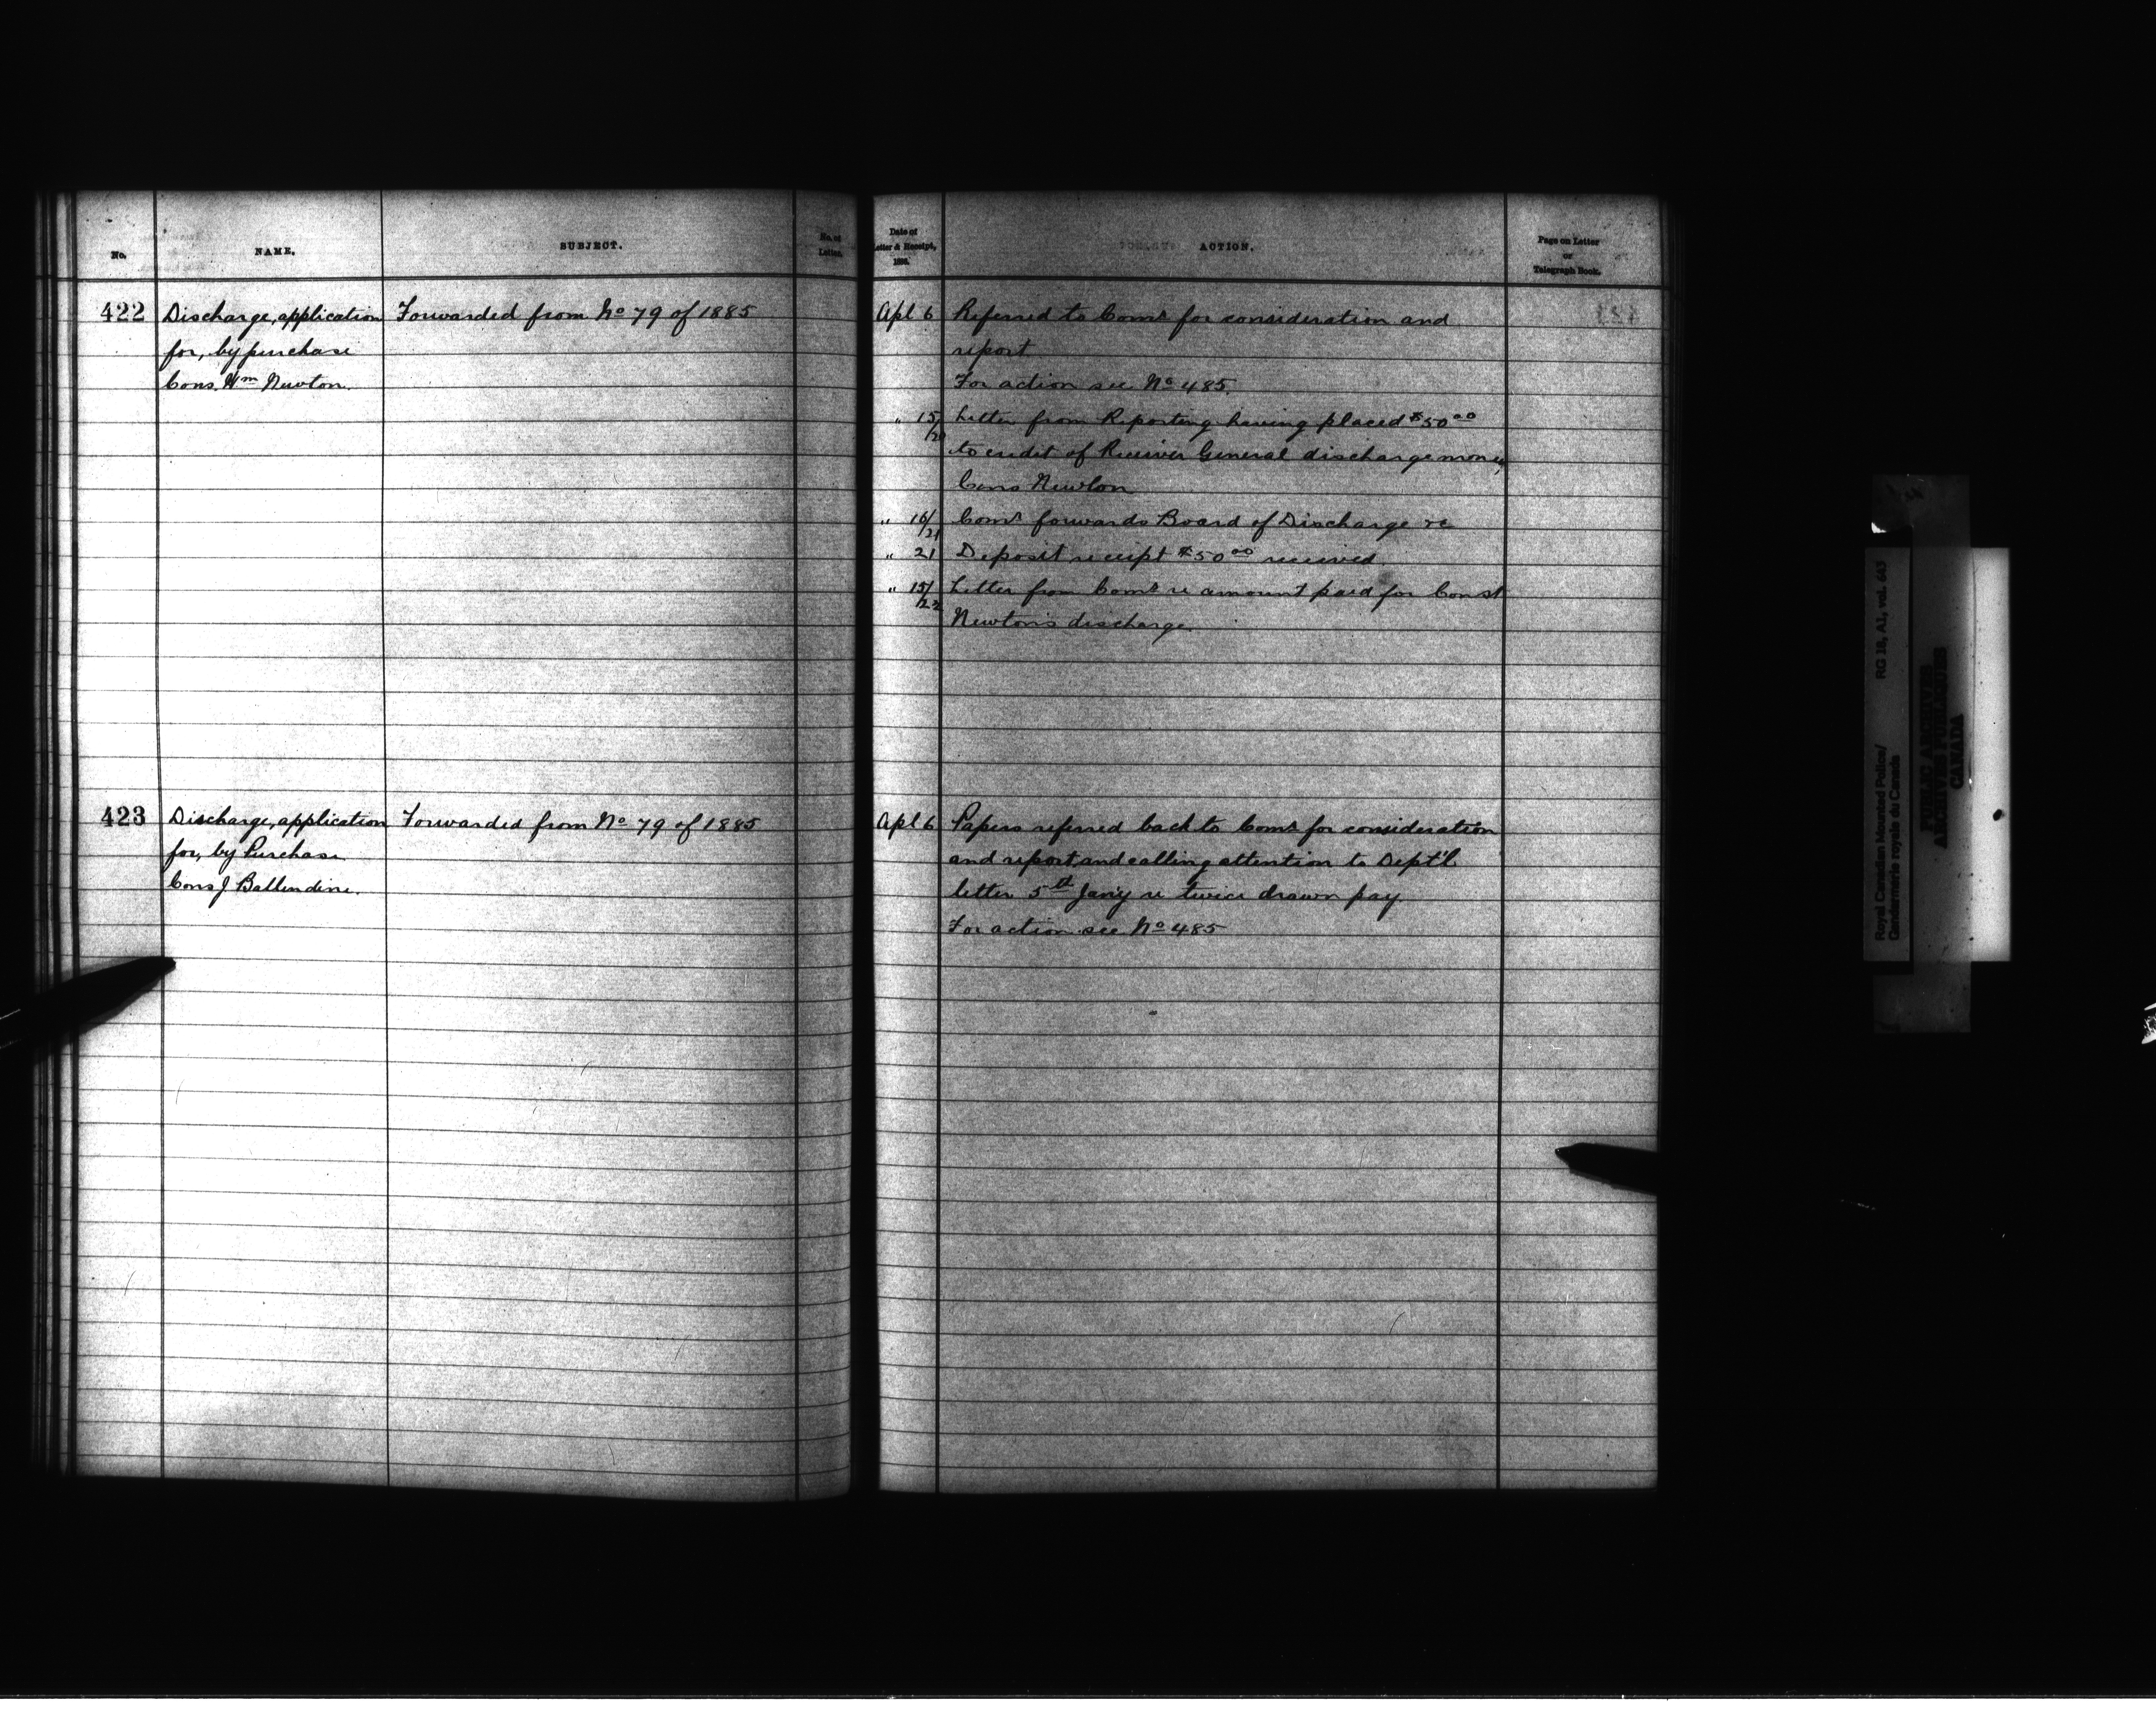 No.
NAME.
SUBJECT.
No. of
Letter.
422
Discharge, application
for, by purchase
Cons. Wm Newton.
Forwarded from No 79 of 1885
423
Discharge, application
for, by Purchase
Cons J Ballendine.
Forwarded from No 79 of 1885
Date of
Letter & Receipt,
ACTION.
Page on Letter
or
Telegraph Book.
Apl 6 Referred to Comr for consideration and
report
For action see No 485
" 15/20 Letter from Reporting having placed $50 00
to credit of Receiver General discharge money
Cons Newton
" 16/21 Comr forwards Board of Discharge re
" 21 Deposit receipt $50 00 received.
" 15/22 Letter from Comr re amount paid for Const
Newton's discharge.
Apl 6 Papers referred back to Comr for consideration
and report, and calling attention to Dept'l
letter 5th Jany re twice drawn pay
For action see No 485
Royal Canadian Mounted Police/
Gendarmerie royale du Canada
RG 18, A1, vol. 643
PUBLIC ARCHIVES
ARCHIVES PUBLIQUES
CANADA